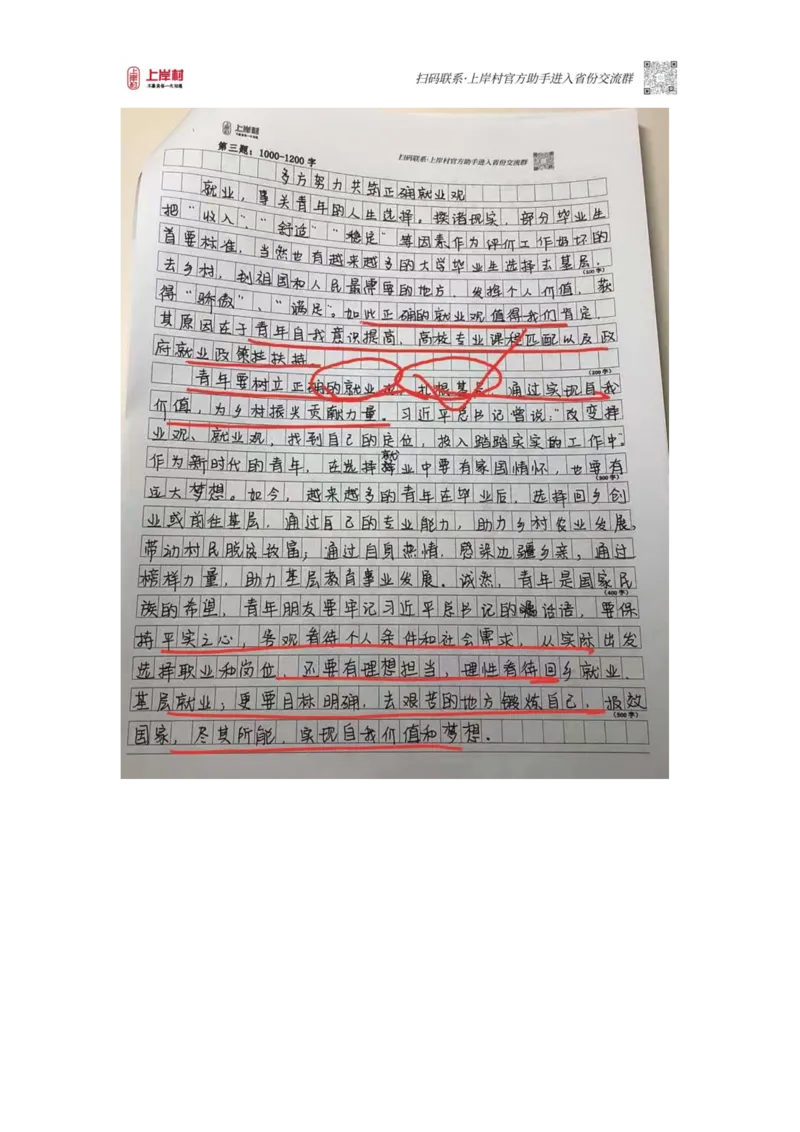 上岸村
扫码联系·上岸村官方助手进入省份交流群
上岸村
第三题：1000-1200字
扫码联系·上岸村官方助手进入省份交流群
多方努力共筑正确就业观
就业，事关青年的人生选择。揆诸现实，部分毕业生
把“收入”、“舒适”“稳定”等因素作为评价工作好坏的
首要标准，当然也有越来越多的大学毕业生选择去基层，
(100字)
去乡村，到祖国和人民最需要的地方，发挥个人价值，获
得“骄傲”、“满足”。如此正确的就业观值得我们肯定，
其原因在于青年自我意识提高，高校专业课程匹配以及政
府就业政策扶持。
(200字)
青年要树立正确的就业观，扎根基层，通过实现自我
价值，为乡村振兴贡献力量。习近平总书记曾说：“改变择
业观、就业观，找到自己的定位，投入踏踏实实的工作中。”
作为新时代的青年，在选择就业中要有家国情怀，也要有
(300字)
远大梦想。如今，越来越多的青年在毕业后，选择回乡创
业或前往基层，通过自己的专业能力，助力乡村农业发展，
带动村民脱贫致富；通过自身热情，感染边疆乡亲；通过
榜样力量，助力基层教育事业发展。诚然，青年是国家民
(400字)
族的希望，青年朋友要牢记习近平总书记的话语，要保
持平实之心，客观看待个人条件和社会需求，从实际出发
选择职业和岗位，还要有理想担当，理性看待回乡就业、
基层就业；更要目标明确，去艰苦的地方锻炼自己，报效
(500字)
国家，尽其所能，实现自我价值和梦想。